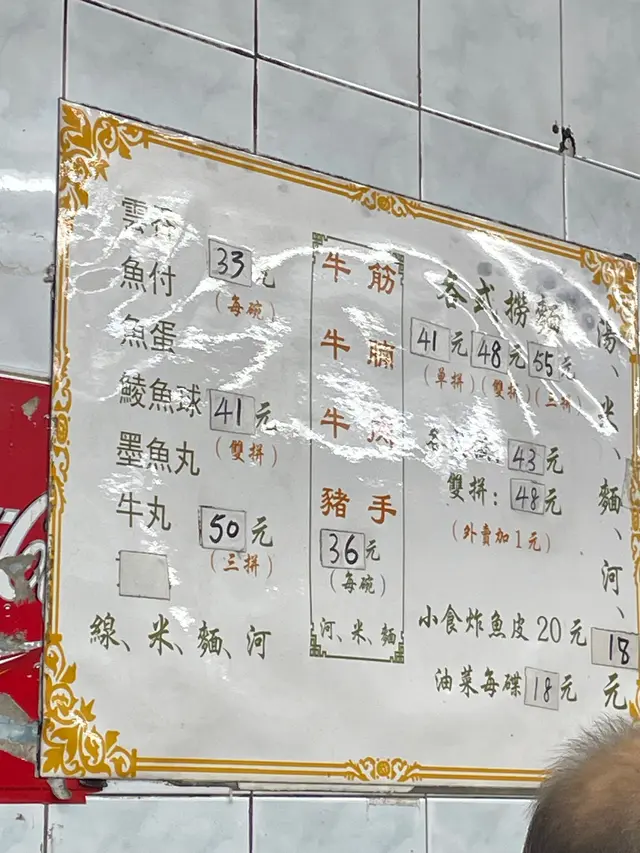 雲吞
魚付
魚蛋
鯪魚球
墨魚丸
牛丸
33元
(每碗)
41元
(雙拼)
50元
(三拼)
線、米、麵、河
牛筋
牛腩
牛
豬手
36元
(每碗)
河、米、麵
各式撈麵
41元 48元 55元
(單拼) (雙拼) (三拼)
43元
雙拼: 48元
(外賣加1元)
小食炸魚皮20元
油菜每碟18元
湯、米、麵、河、
18
元